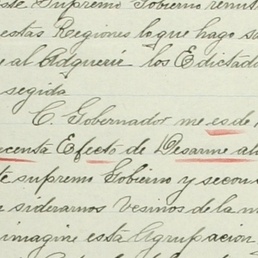 ste Supremo Gobierno remit
estas Regiones lo que hago sa
e al Adquerir los Edictad
segida
C. Gobernador me es de
centa Efecto de Desarme al
te supremo Gobierno y secon
siderarnos Vesinos de la m
imagine esta Agrupacion